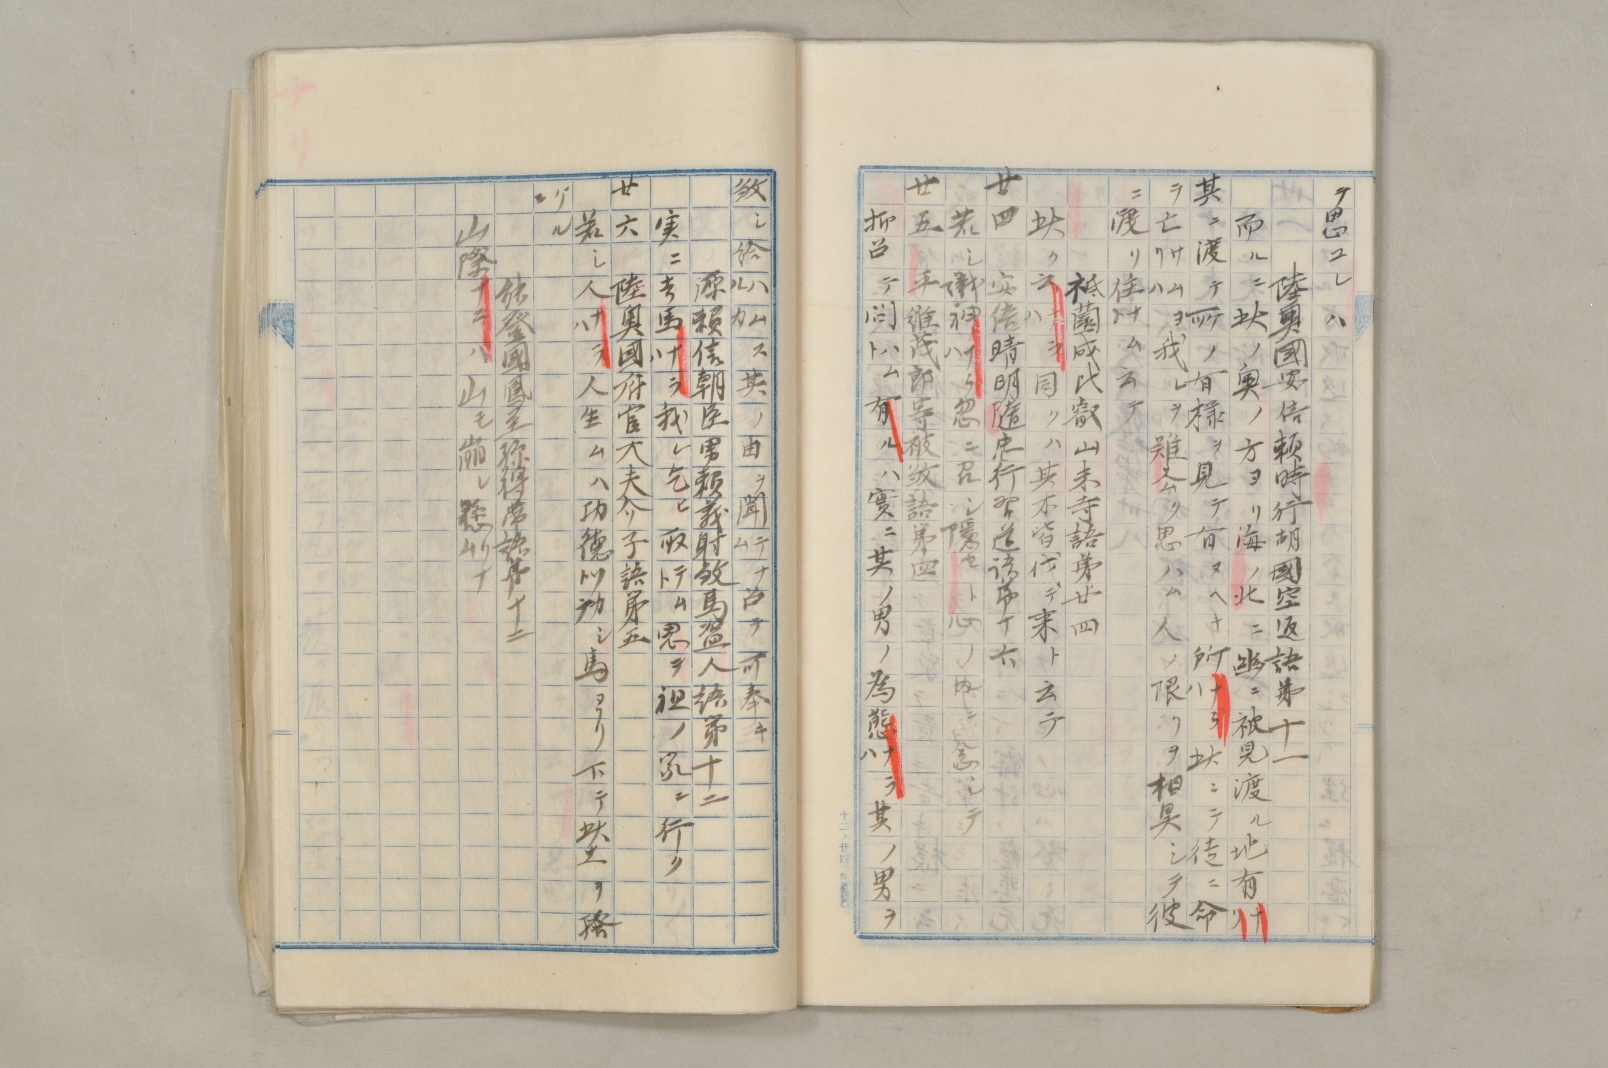 ヲ思ユレハ
陸奥國安倍頼時行胡國空返語第十一
而ルニ此ノ奥ノ方ヨリ海ノ北ニ幽ニ被見渡ル地有ナリ
其ニ渡テ所ノ有樣ヲ見テ有ヌベキ所ナラハ此ニテ徒ニ命
ヲ亡サムヨリハ我レヲ難去ク思ハム人ノ限リヲ相具シテ彼
ニ渡リ住ナムト云テ
祇薗成比叡山末寺語第廿四
此ク云ナラハ同クハ其木皆伐テ来ト云テ
廿四 安倍晴明隨忠行習道語第十六
若シ識神ナラハ忽ニ召シ隱セト心ノ内ニ念シテ
廿五 平維茂郎等被殺語第四
押呂テ問ハムト有ルハ實ニ其ノ男ノ為態ナラハ其ノ男ヲ
殺シ給ハムスルカ其ノ由ヲ聞テナム召テ可奉キ
源頼信朝臣男頼義射殺馬盗人語第十二
実ニ吉馬ナラハ我レ乞ヒ取テムト思ヲ祖ノ家ニ行ク
廿六 陸奥國府官大夫介子語第五
若シ人ナラハ人生ムハ功德トツ
馬ヨリ下テ
能登國鳳至孫得帯語第十二
山際ナラハ山モ崩レ
ナリ